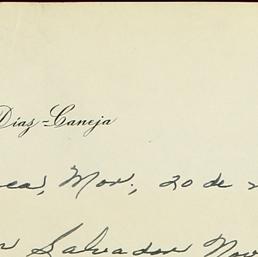 Díaz-Caneja
Mor., 20 de
Salvador Nov